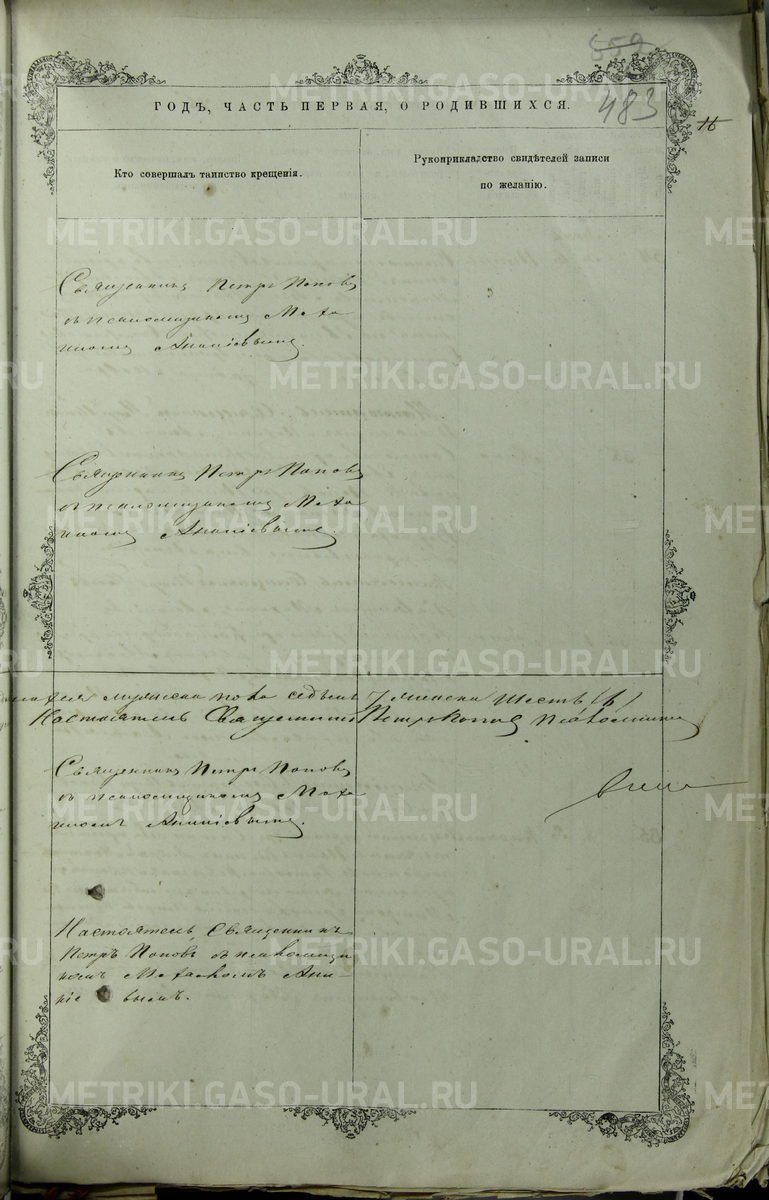 559
483
16
ГОДЪ, ЧАСТЬ ПЕРВАЯ, О РОДИВШИХСЯ.
Кто совершалъ таинство крещенія.
Рукоприкладство свидѣтелей записи
по желанію.
Священникъ Петръ Поповъ
съ псаломщикомъ
Ананіевымъ.
Священникъ Петръ Поповъ
съ псаломщикомъ
Ананіевымъ.
пола седьмъ 7 женска шесть (6)
Настоятель Священникъ Петръ Поповъ Псаломщикъ
Священникъ Петръ Поповъ
съ псаломщикомъ
Ананіевымъ.
Настоятель, Священникъ
Петръ Поповъ, съ псаломщи
комъ Ана-
ніе вымъ.
METRIKI.GASO-URAL.RU